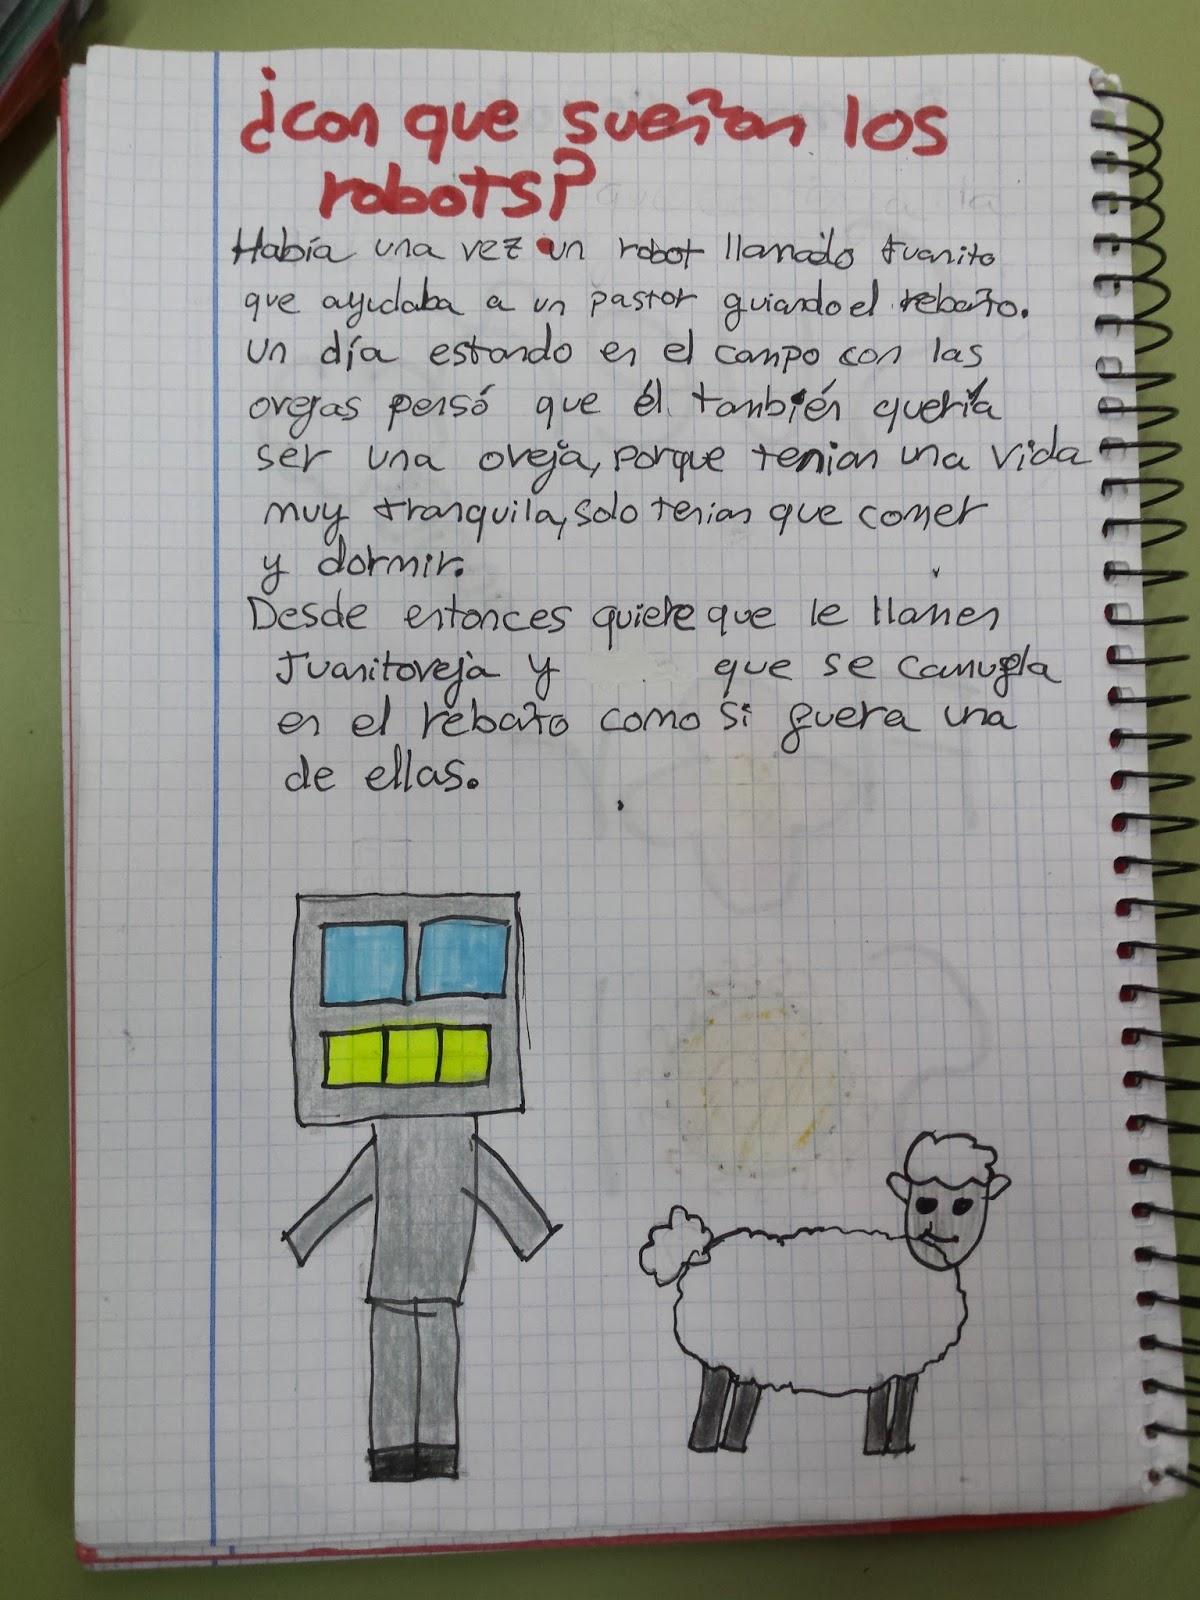 ¿con que sueñan los
robots?
Había una vez un robot llamado Juanito
que ayudaba a un pastor guiando el rebaño.
un día estando en el campo con las
ovejas pensó que él también quería
ser una oveja, porque tenian una vida
muy tranquila, solo tenian que comer
y dormir.
Desde entonces quiere que le llamen
Juanitoveja y que se camufla
en el rebaño como si fuera una
de ellas.